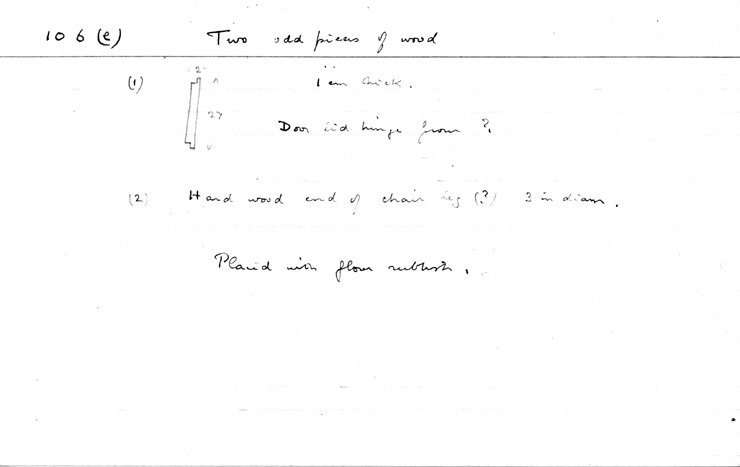 106(e) Two odd pieces of wood
(1) 2 1 cm thick.
27
Door lid hinge from ?.
(2) Hard wood end of chair leg (?) 3 in diam.
Placed with floor rubbish.